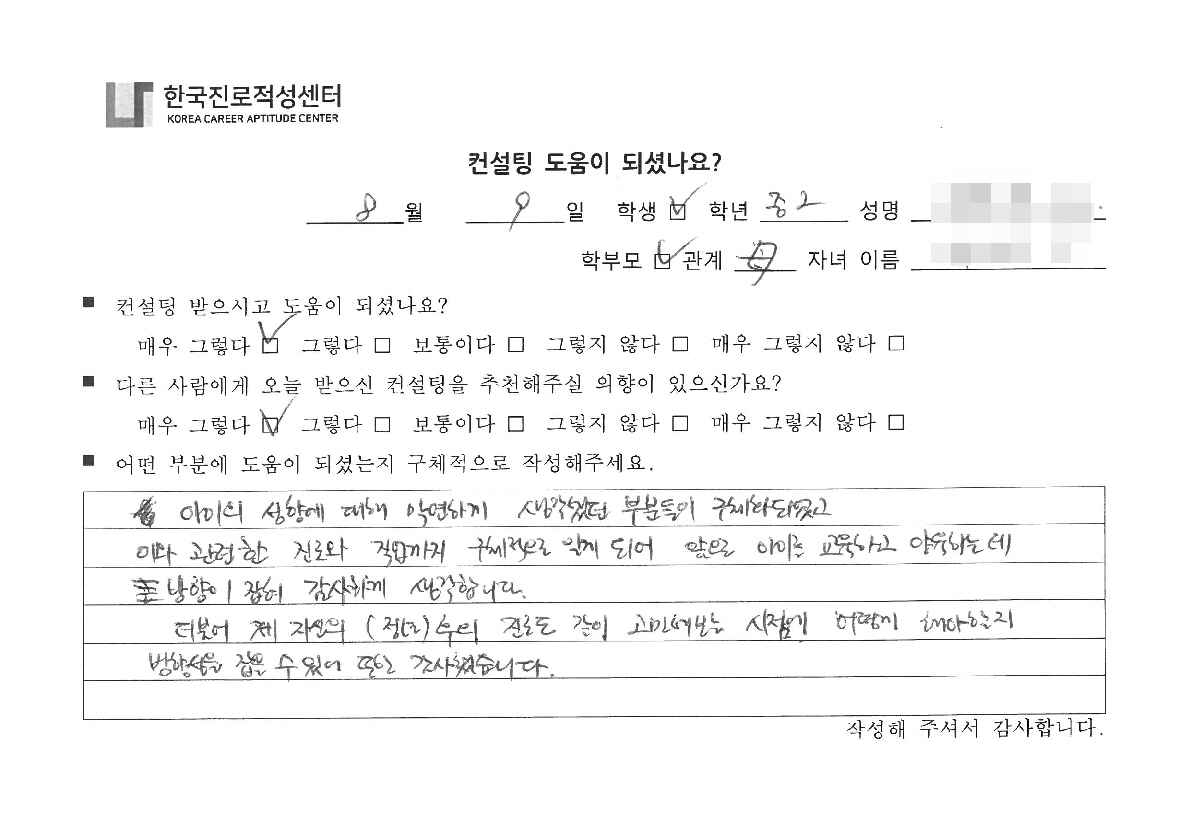 한국진로적성센터
KOREA CAREER APTITUDE CENTER
컨설팅 도움이 되셨나요?
8월 9일 학생 ☑ 학년 중2 성명
학부모 ☑ 관계 모 자녀 이름
■ 컨설팅 받으시고 도움이 되셨나요?
매우 그렇다 ☑ 그렇다 □ 보통이다 □ 그렇지 않다 □ 매우 그렇지 않다 □
■ 다른 사람에게 오늘 받으신 컨설팅을 추천해주실 의향이 있으신가요?
매우 그렇다 ☑ 그렇다 □ 보통이다 □ 그렇지 않다 □ 매우 그렇지 않다 □
■ 어떤 부분에 도움이 되셨는지 구체적으로 작성해주세요.
아이의 성향에 대해 막연하게 생각했던 부분들이 구체화되었고
이와 관련한 진로와 직업까지 구체적으로 알게 되어 앞으로 아이를 교육하고 양육하는데
방향이 잡혀 감사하게 생각합니다.
더불어 제 자신의 ( ) 후의 진로도 같이 고민해보는 시점에 어떻게 해야하는지
방향성을 잡을 수 있어 또한 감사했습니다.
작성해 주셔서 감사합니다.